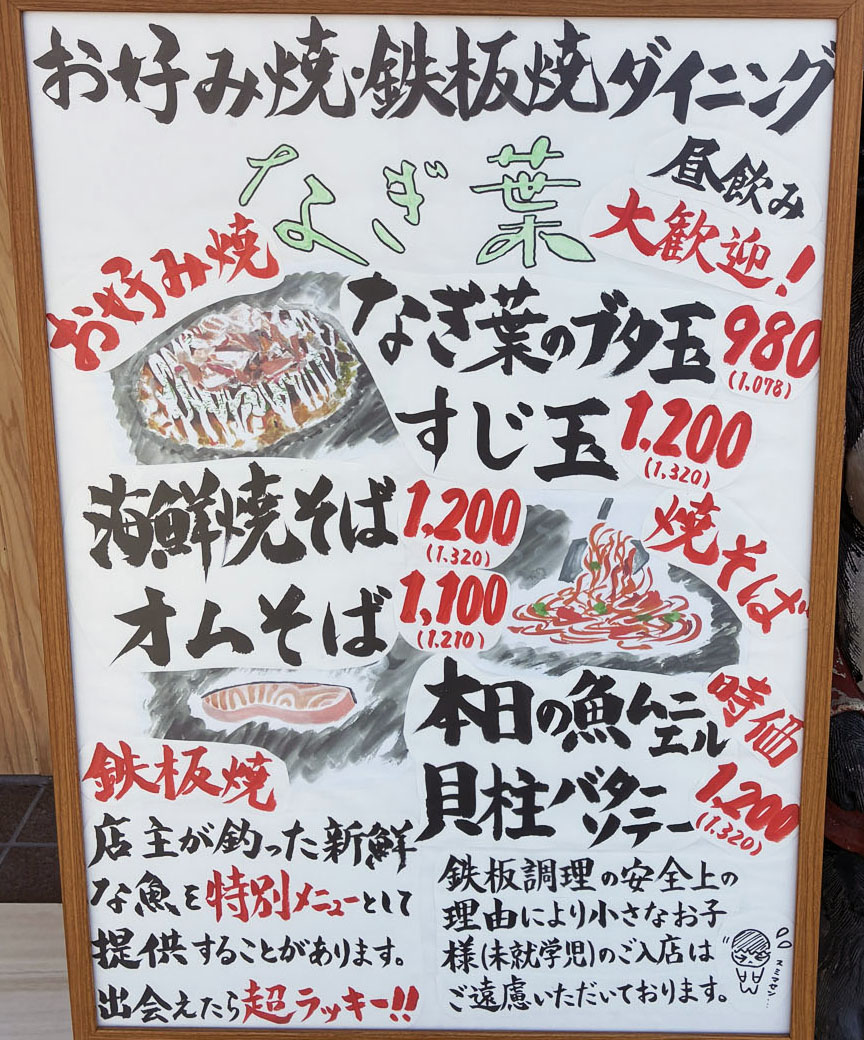 お好み焼・鉄板焼ダイニング
なぎ葉
昼飲み
大歓迎！
お好み焼
なぎ葉のブタ玉 980
(1.078)
すじ玉 1.200
(1,320)
海鮮焼そば 1,200
(1.320)
オムそば 1,100
(1.210)
焼そば
本日の魚ムニエル 時価
貝柱バターソテー 1,200
(1.320)
鉄板焼
店主が釣った新鮮
な魚を特別メニューとして
提供することがあります。
出会えたら超ラッキー!!
鉄板調理の安全上の
理由により小さなお子
様(未就学児)のご入店は
ご遠慮いただいております。
スミマセン...